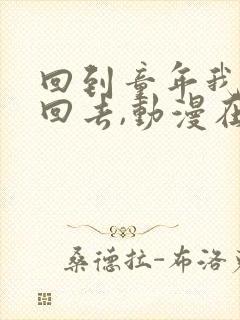 回到童年我
回去,動漫在
桑德拉-布洛克